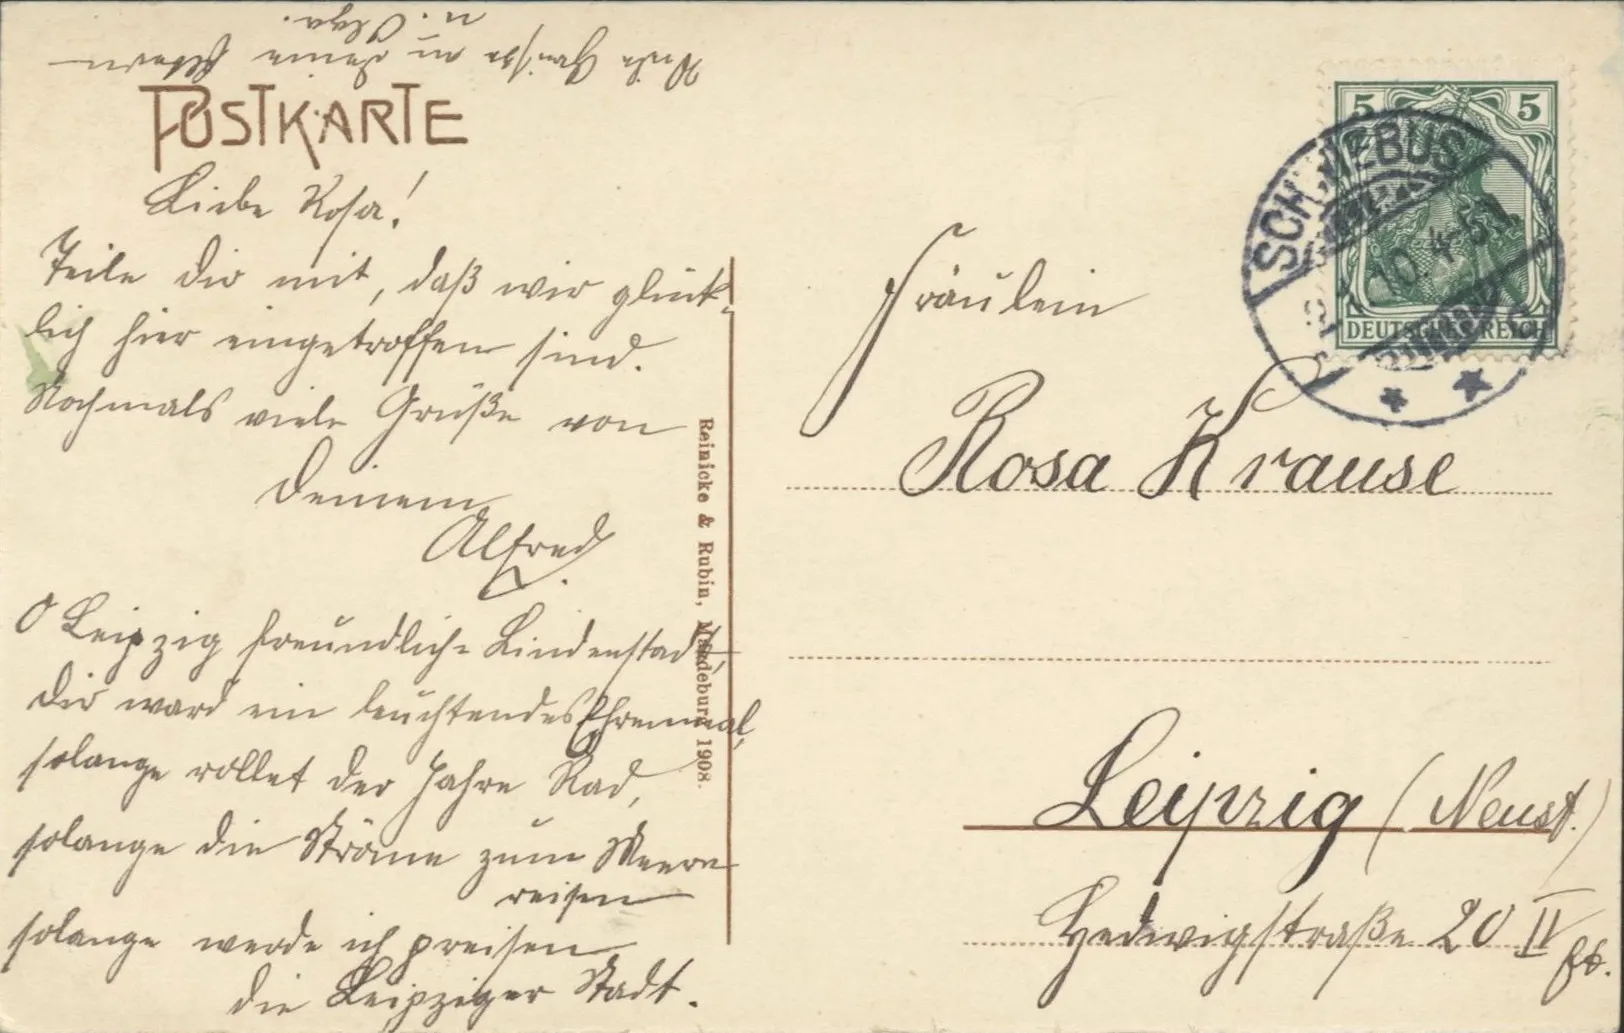 Viele Grüße an deine Eltern
u. Olga.
POSTKARTE
Liebe Rosa!
Teile Dir mit, daß wir glück-
lich hier eingetroffen sind.
Nochmals viele Grüße von
Deinem
Alfred.
O Leipzig freundliche Lindenstadt,
Dir ward ein leuchtendes Ehrenmal,
solange rollet der Jahre Rad,
solange die Ströme zum Meere
reisen
solange werde ich preisen
die Leipziger Stadt.
Reinicke & Rubin, Magdeburg 1908.
5 5
DEUTSCHES REICH
SCHWIEBUS
10. 4-5N
Fräulein
Rosa Krause
Leipzig (Neust.)
Hedwigstraße 20 II